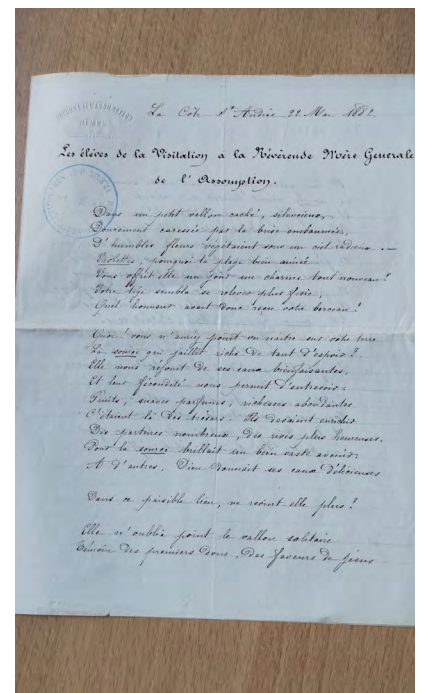 La Côte St André 22 Mai 1882
Les élèves de la Visitation à la Révérende Mère Generale
de l'Assomption.
Dans un petit vallon caché, silencieux,
Doucement caressée par la brise embaumée,
D'humbles fleurs végétaient sous un ciel radieux
Violettes, pourquoi la plage bien aimée
Vous offrit elle un jour un charme tout nouveau?
Votre tige sembla se relever plus fière,
Quel honneur avait donc reçu votre berceau?
Quoi! vous n'auriez point vu naître sur votre terre
La source qui jaillit riche de tant d'espoir?
Elle nous réjouit de ses eaux bienfaisantes,
Et leur fécondité nous permit d'entrevoir.
Fruits, suaves parfums, richesses abondantes
C'étaient là ses trésors. Ils devaient enrichir
Des parterres nombreux, des rives plus heureuses.
Pour la source brillait un bien vaste avenir:
A d'autres, Dieu donnait ses eaux délicieuses
Dans ce paisible lieu, ne vient elle plus?
Elle n'oublie point le vallon solitaire
Témoin des premiers dons, des faveurs de Jésus